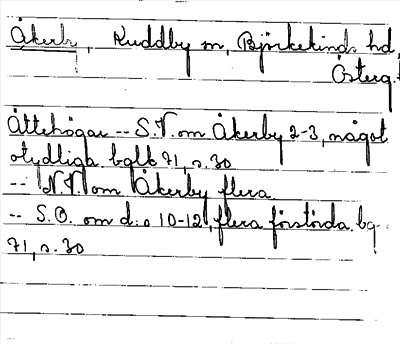 Åkerby, Kuddby sn, Björkekinds hd,
Österg.
Ättehögar -- S.V. om Åkerby 2-3, något
otydliga bqlk 71, s. 30
-- N.V. om Åkerby flera
-- S.O. om d:o 10-12, flera förstörda bq
71, s. 30